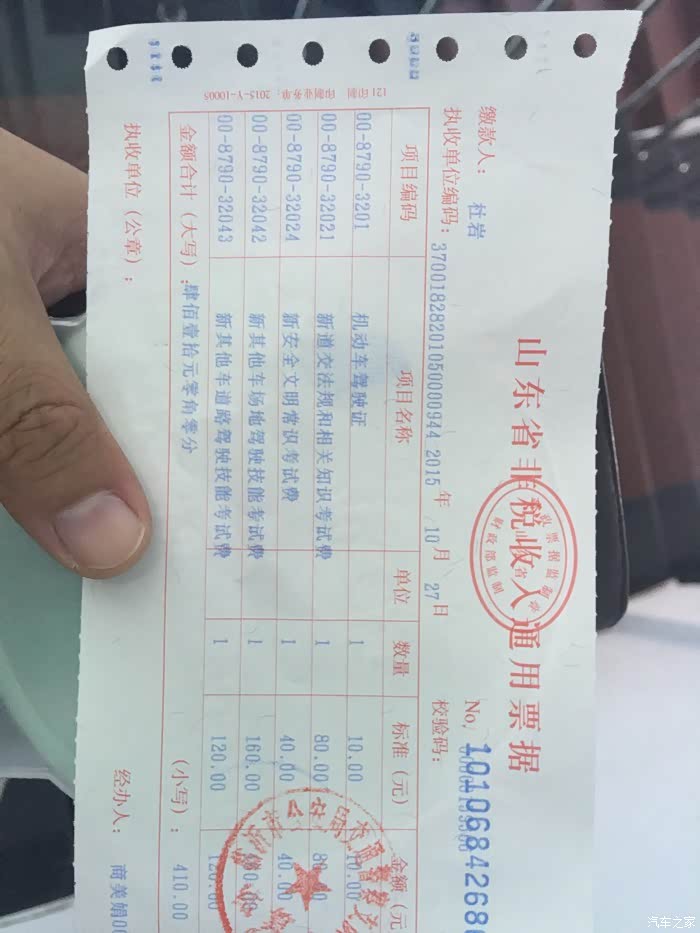 山东省非税收入通用票据
No, 1010684268
缴款人： 杜岩
校验码：
执收单位编码：3700182820105000094４ 2015年 10月 27日
项目编码 项目名称 单位 数量 标准（元） 金额（元
00-8790-3201 机动车驾驶证 1 10.00 10.00
00-8790-32021 新道交法规和相关知识考试费 1 80.00
00-8790-32024 新安全文明常识考试费 1 40.00 40.00
00-8790-32042 新其他车场地驾驶技能考试费 1 160.00
00-8790-32043 新其他车道路驾驶技能考试费 1 120.00 120.00
金额合计（大写）：肆佰壹拾元零角零分 （小写）： 410.00
执收单位（公章）： 经办人： 商美娟
121印制 印制业务单：2015-Y-10005
财政部监制
汽车之家